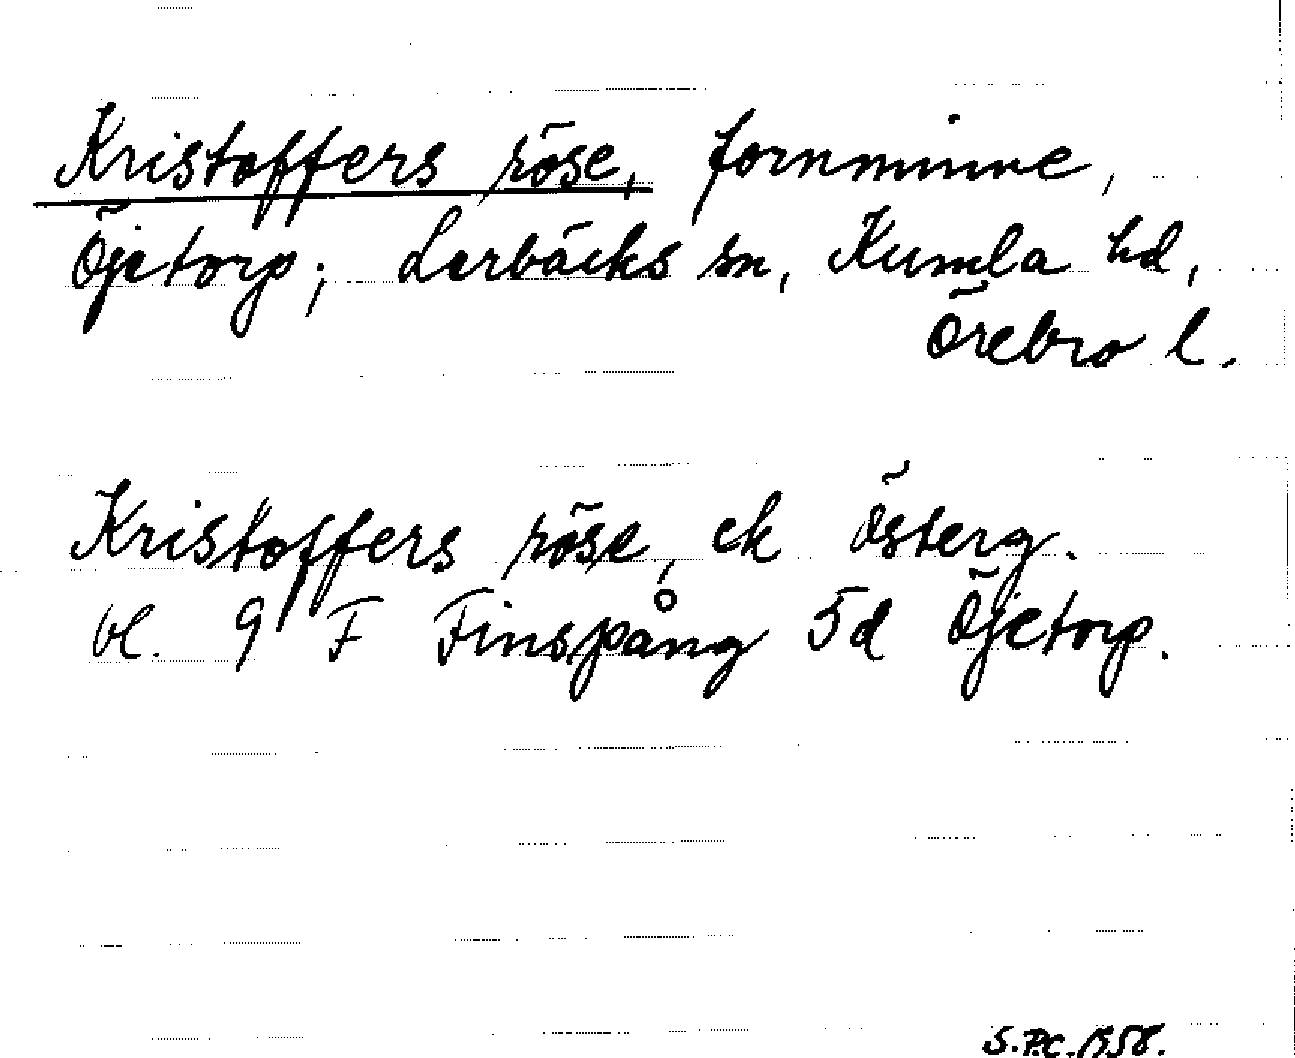 Kristoffers röse, fornminne,
Öjetorp; Lerbäcks sn, Kumla hd,
Örebro l.
Kristoffers röse, ek Österg.
bl. 9 F Finspång 5d Öjetorp.
S.P.C. 1958.